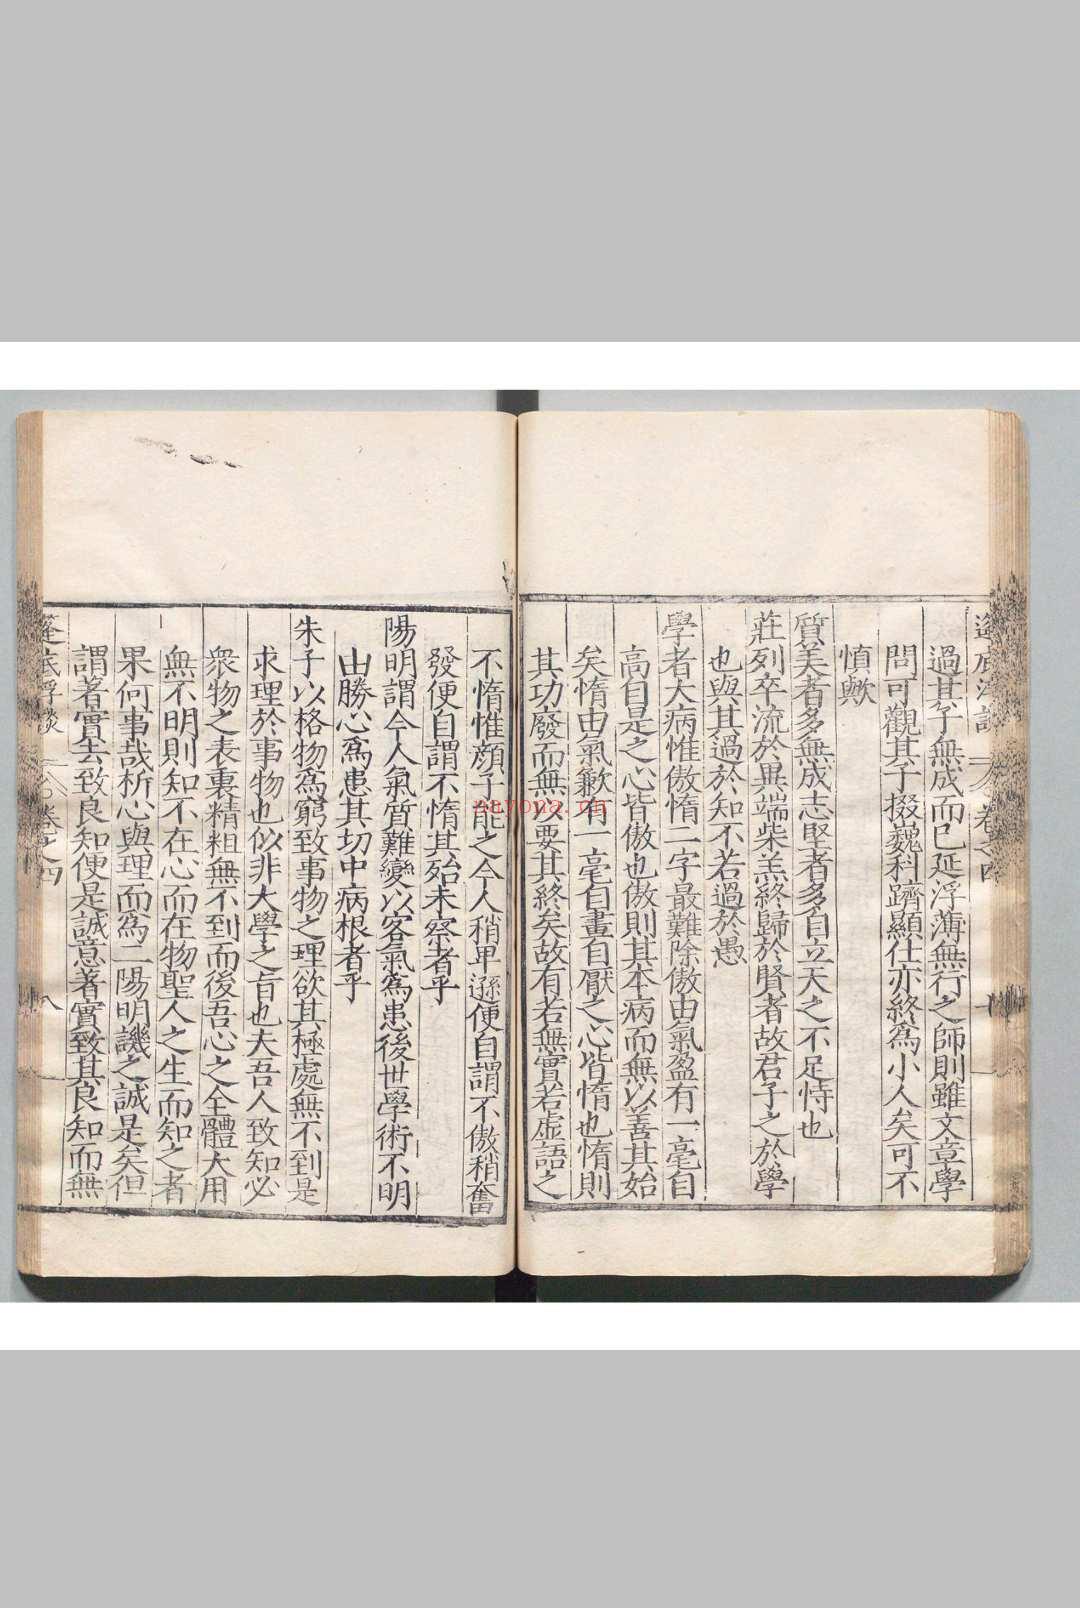 過其子無成而已延浮薄無行之師則雖文章學
問可觀其子掇巍科躋顯仕亦終為小人矣可不
慎歟
質美者多無成志堅者多自立天之不足恃也
莊列卒流於異端柴羔終歸於賢者故君子之於學
也與其過於知不若過於愚
學者大病惟傲惰二字最難除傲由氣盈有一毫自
高自是之心皆傲也傲則其本病而無以善其始
矣惰由氣歉有一毫自畫自厭之心皆惰也惰則
其功廢而無以要其終矣故有若無實若虛語之
不惰惟顔子能之今人稍卑遜便自謂不傲稍奮
發便自謂不惰其殆未察者乎
陽明謂今人氣質難變以客氣為患後世學術不明
由勝心為患其切中病根者乎
朱子以格物為窮致事物之理欲其極處無不到是
求理於事物也似非大學之旨也夫吾人致知必
衆物之表裏精粗無不到而後吾心之全體大用
無不明則知不在心而在物聖人之生而知之者
果何事哉析心與理而為二陽明譏之誠是矣但
謂著實去致良知便是誠意著實致其良知而無
蓬底浮談
卷之四
八
nayona.cn